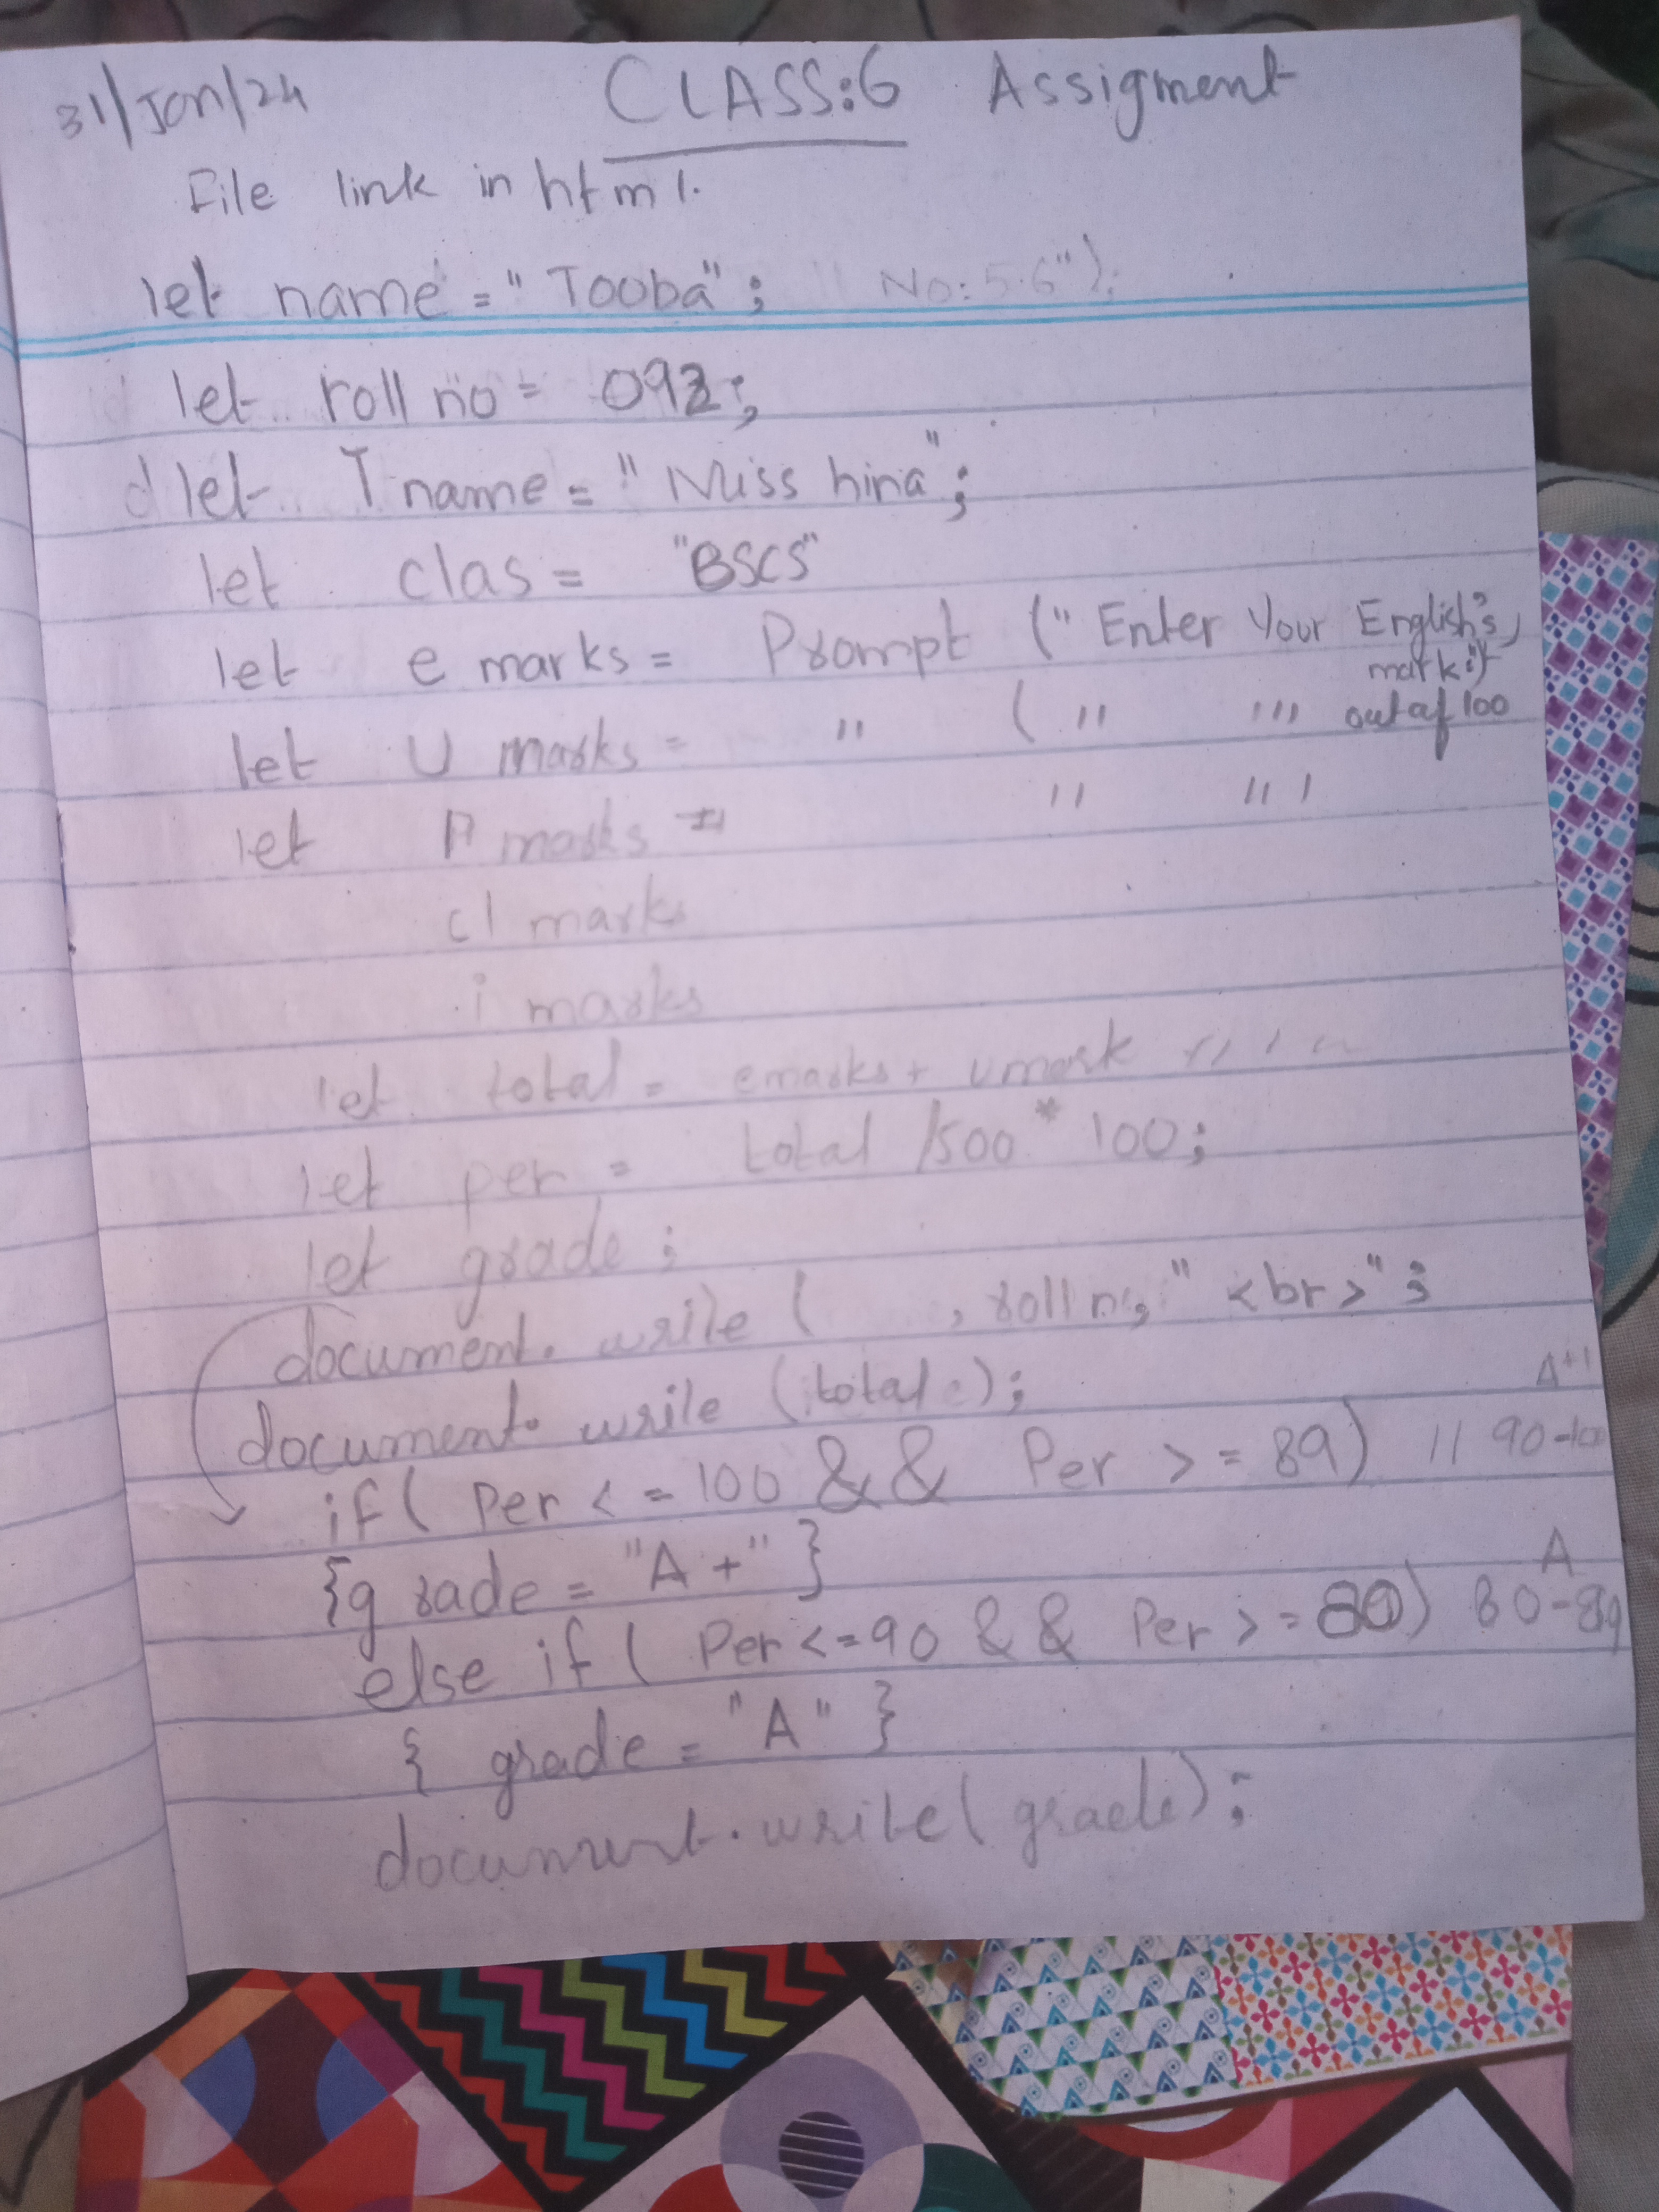 31/Jan/24 CLASS:6 Assigment
File link in html.
let name = "Tooba"; No: 5.6");
let roll no = 092;
d let T name = "Miss hina";
let clas = "BSCS"
let e marks = Prompt (" Enter Your English's,
mark:")
let U marks = " ( " "' out of 100
let P marks = " "'
cl marks
i marks
let total = emarks + umark
let per = total /500 * 100;
let grade;
document. write ( , roll no, " <br>";
document. write (total);
A+1
if( Per <= 100 && Per >= 89) // 90-100
{grade = "A+" }
A
else if ( Per <=90 && Per >= 80) 80-89
{ grade = "A" }
document.write( grade);